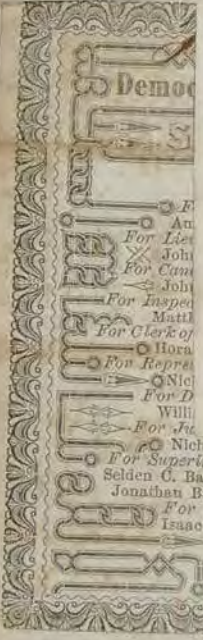 Democ
S
F
Au
For Lieu
John
For Cana
John
For Inspec
Matth
For Clerk of
Hora
For Repres
Nich
For D
Willi
For Ju
Nich
For Superi
Selden C. Ba
Jonathan B
For
Isaac